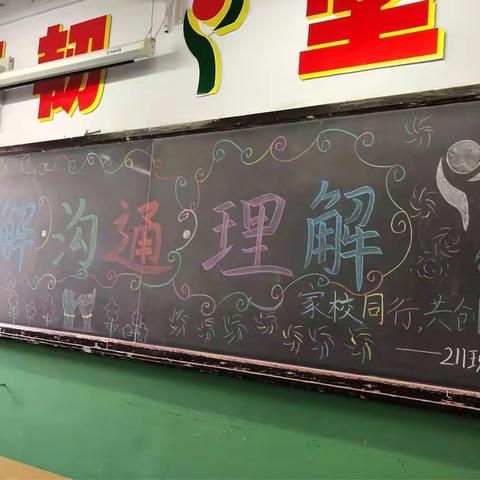 韧 坚
解 沟通 理解
家校同行,共创
——211班